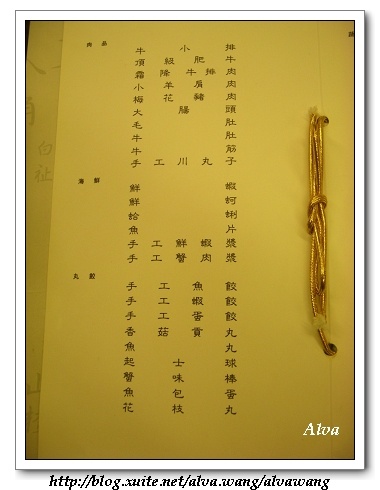 肉品
牛小排
頂級肥牛
霜降牛排肉
小羊肩肉
梅花豬肉
大腸頭
毛肚
牛肚
牛筋
手工川丸子
海鮮
鮮蝦
鮮蚵
蛤蜊
魚片
手工鮮蝦漿
手工蟹肉漿
丸餃
手工魚餃
手工蝦餃
手工蛋餃
香菇貢丸
魚丸
起士球
蟹味棒
魚包蛋
花枝丸
Alva
http://blog.xuite.net/alva.wang/alvawang